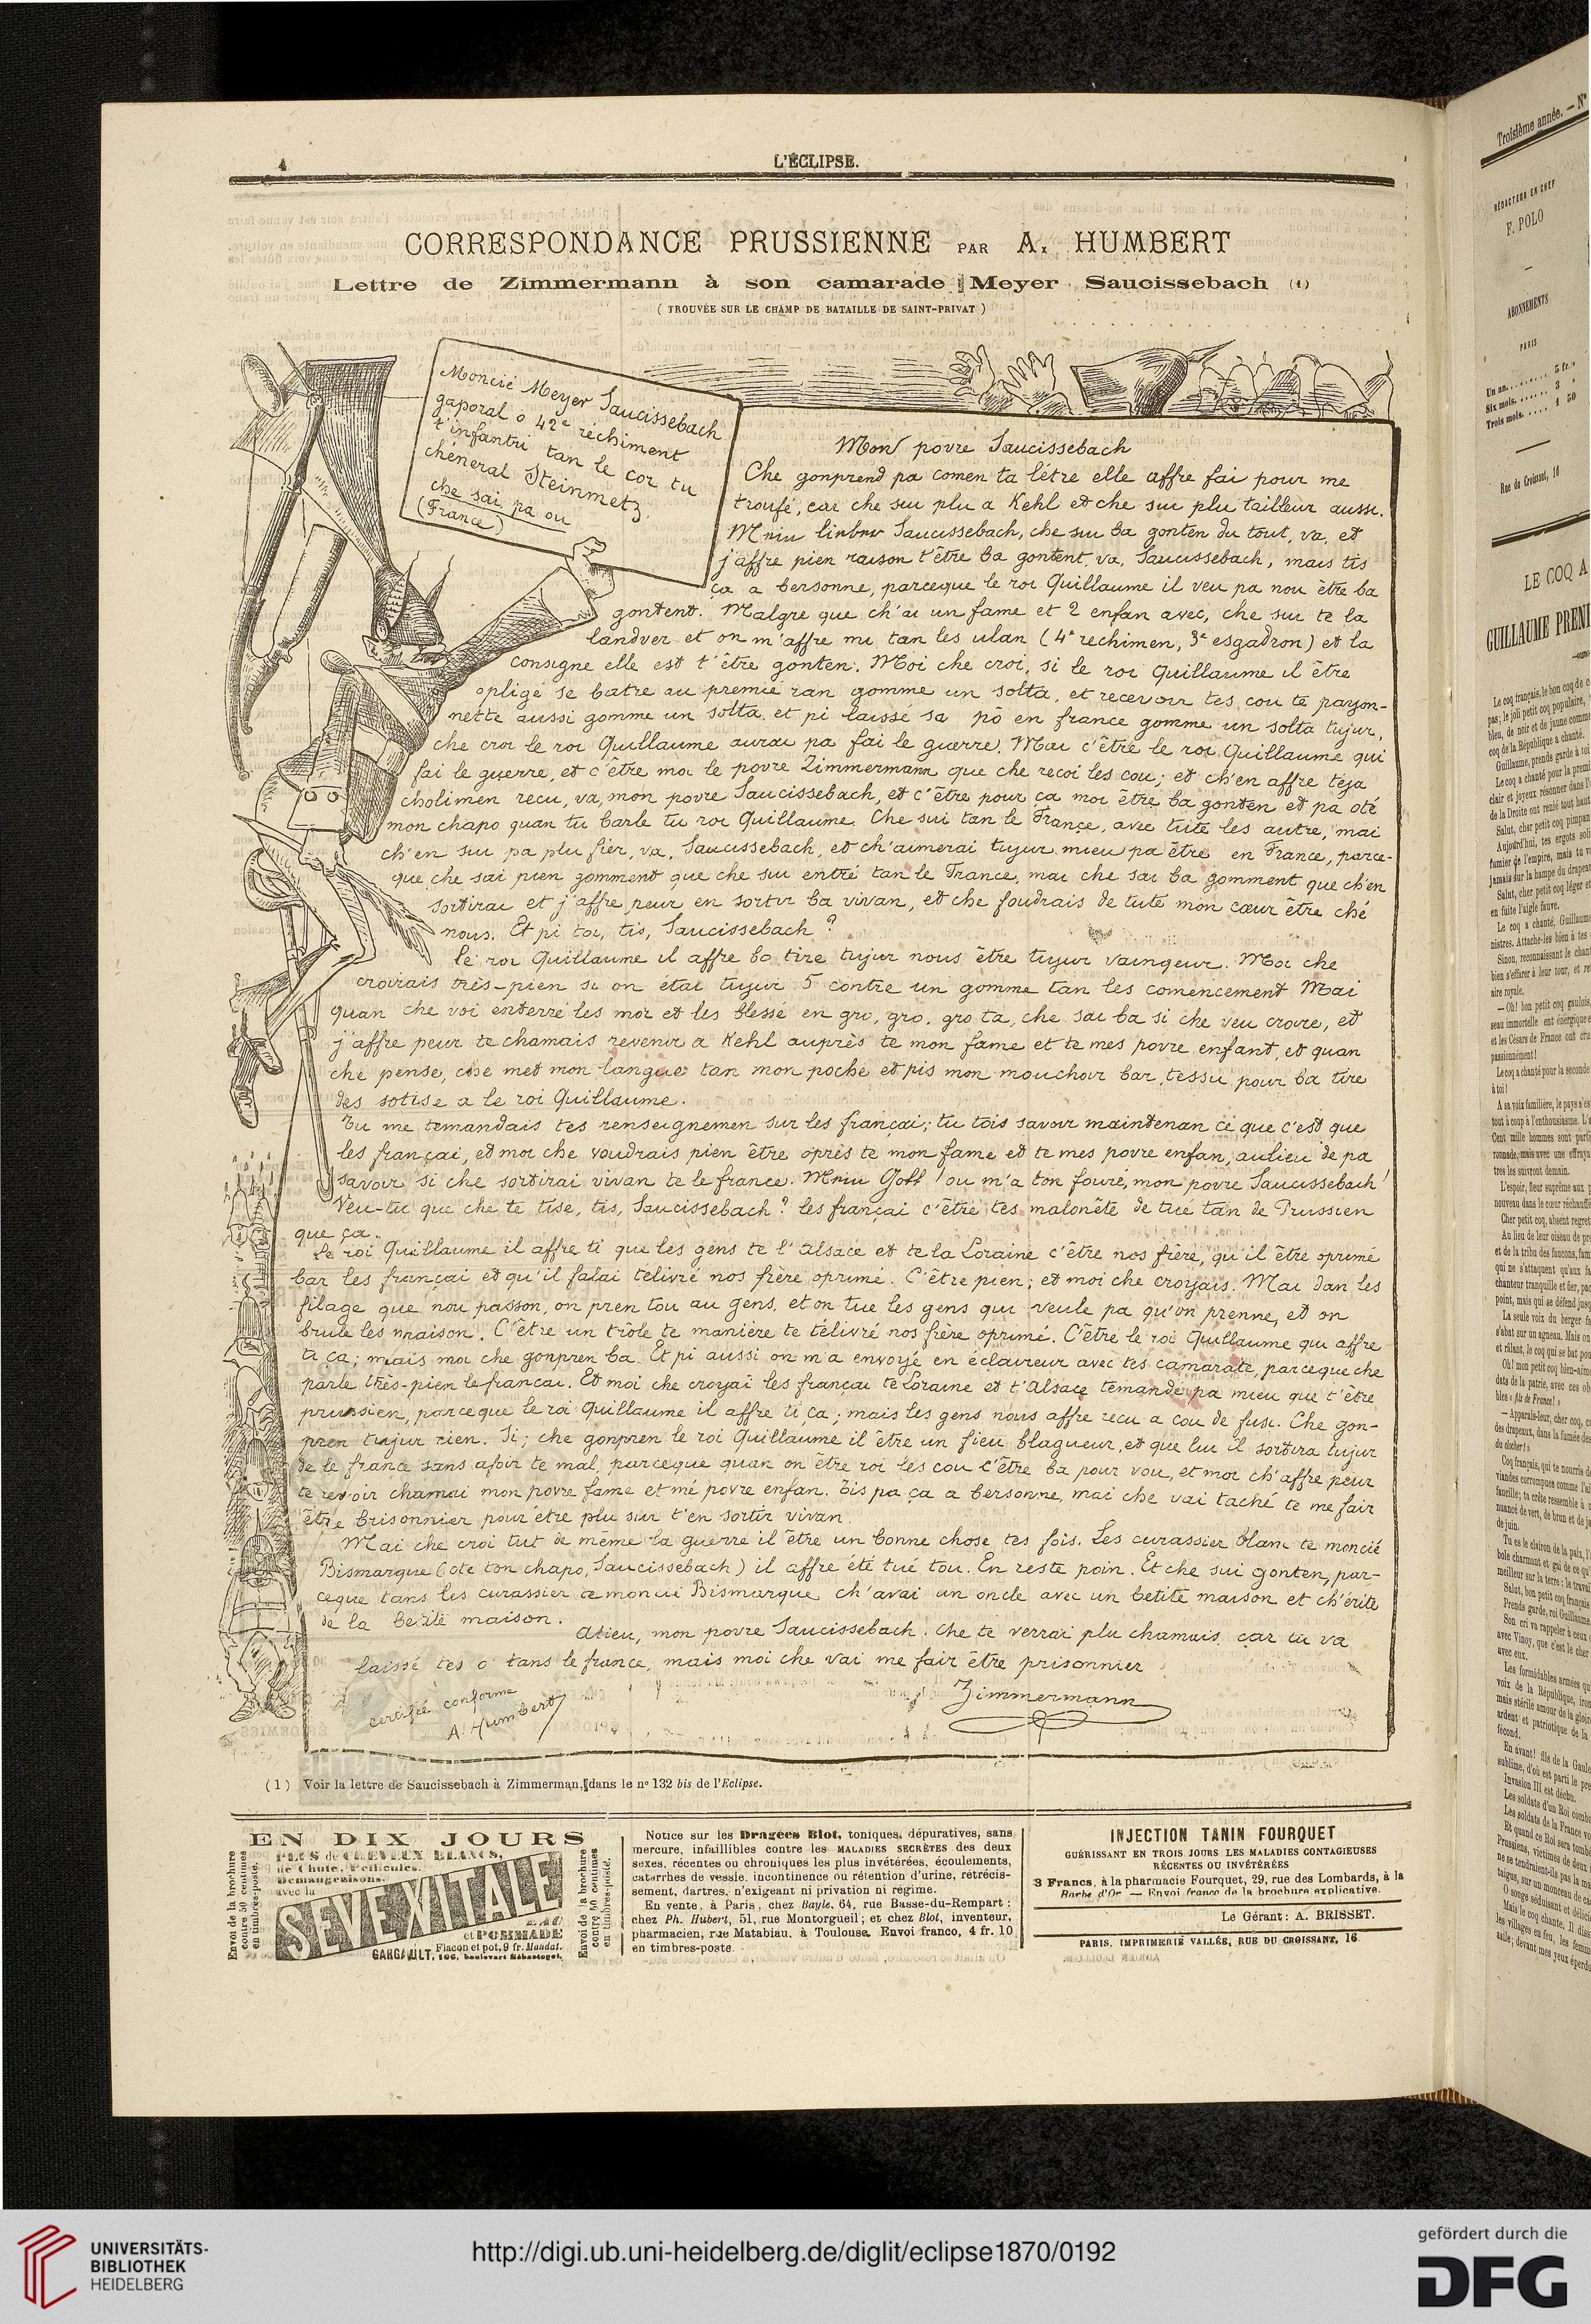 4
L'ÉCLIPSE.
CORRESPONDANCE PRUSSIENNE PAR A. HUMBERT
Lettre de Zimmermann à son camarade Meyer Saucissebach (1)
( TROUVÉE SUR LE CHAMP DE BATAILLE DE SAINT-PRIVAT )
Moncié Meyer Saucissebach
gaporal o 42e réchiment
t'infantri tan le cor tu
chéneral Steinmetz.
che sai pa ou
(France)
Mon povre Saucissebach
Che gonprend pa comen ta létre elle affre fai pour me
troufé, car che sui plu a Kehl et che sui plu tailleur aussi.
Saucissebach, che sui ba gonten du tout, va, et
j'affre pien raison t'être ba gontent, va, Saucissebach, mais tis
ça a bersonne, parceque le roi Guillaume il veu pa nou être ba
gontent. Malgre que ch'ai un fame et 2 enfan avec, che sui te la
landver et on m'affre mi tan les ulan (4e rechimen, 3e esgadron) et la
consigne elle est t'être gonten. Moi che croi, si le roi Guillaume il être
opligé se batre au premié ran gomme un solta, et recevoir tes cou te payon-
nette aussi gomme un solta, et pi laissé sa pô en france gomme un solta tujur,
che croi le roi Guillaume aurai pa fai le guerre. Mai c'être le roi Guillaume qui
fai le guerre, et c'être moi le povre Zimmermann que che reçoi les cou; et ch'en affre téja
cholimen recu, va, mon povre Saucissebach, et c'être pour ça moi être ba gonten et pa oté
mon chapo quan tu barle tu roi Guillaume. Che sui tan le France, avec tute les autre, mai
ch'en sui pa plu fier, va, Saucissebach, et ch'aimerai tujur mieu pa être en France, parce-
que che sai pien gomment que che sui entré tan le France, mai che sai ba gomment que ch'en
sortirai et j'affre peur en sortir ba vivan, et che foudrais de tute mon cœur être ché
nous. Et pi toi, tis, Saucissebach ?
Le roi Guillaume il affre bo tire tujur nous être tujur vainqeur. Moi che
croirais très-pien si on étai tujur 5 contre un gomme tan les comencement Mai
quan che voi enterré les mor et les blessé en gro, gro, gro ta, che sai ba si che veu croire, et
j'affre peur te chamais revenir a Kehl auprès te mon fame et te mes povre enfant, et quan
che pense, che met mon langue tan mon poche et pis mon mouchoir bar tessu pour ba tire
des sotise a le roi Guillaume.
Tu me temandais tes renseignemen sur les françai; tu tois savoir maintenan ce que c'est que
les françai, et moi che voudrais pien être oprès te mon fame et te mes povre enfan, aulieu de pa
savoir si che sortirai vivan te le france. Mein Gott ! ou m'a ton fouré, mon povre Saucissebach !
Veu-tu que che te tise, tis, Saucissebach ? les françai c'être tes malonête de tué tan de Prussien
que ça.
Le roi Guillaume il affre ti que les gens te l'Alsace et te la Loraine c'être nos frère, qu'il être oprimé
bar les françai et qu'il falai télivré nos frère oprimé. C'être pien; et moi che croyais. Mai dan les
filage que nou passon, on pren tou au gens, et on tue les gens qui veule pa qu'on prenne, et on
brule les maison. C'être un trôle te manière te télivré nos frère oprimé. C'être le roi Guillaume qui affre
ti ça; mais moi che gonpren ba. Et pi aussi on m'a envoyé en éclaireur avec tes camarate, parceque che
parle très-pien le francai. Et moi che croyai les françai te Loraine et t'Alsace temandé pa mieu que t'être
prussien, parceque le roi Guillaume il affre ti ça; mais les gens nous affre recu a cou de fusi. Che gon-
pren tujur rien. Si; che gonpren le roi Guillaume il être un fieu blagueur, et que lui il sortira tujur
de le france sans afoir te mal, parceque quan on être roi les cou c'être ba pour vou, et moi ch'affre peur
te revoir chamai mon povre fame et mé povre enfan. Tis pa ça a bersonne, mai che vai taché te me fair
être brisonnier pour être plu sur t'en sortir vivan.
Mai che croi tut de même la guerre il être un bonne chose tes fois. Les cuirassier blanc te moncié
Bismarque (ote ton chapo, Saucissebach) il affre été tué tou. En reste poin. Et che sui gonten, par-
ceque tans les cuirassier a moncié Bismarque ch'avai un oncle avec un betite maison et ch'érite
de la betite maison.
Atieu, mon povre Saucissebach. Che te verrai plu chamais, car tu va
laissé tes o tans le france, mais moi che vai me fair être prisonnier
Zimmermann
certifié conforme
A. Humbert
(1) Voir la lettre de Saucissebach à Zimmerman, dans le no 132 bis de l'Eclipse.
EN DIX JOURS
PLUS de CHEVEUX BLANCS,
de Chute, Pellicules,
Démangeaisons,
avec la
SEVE VITALE
EAU
et POMMADE
Flacon et pot, 9 fr. Mandat.
GARGAULT, 106, boulevart Sébastopol.
Envoi de la brochure
contre 50 centimes
en timbres-poste.
Envoi de la brochure
contre 50 centimes
en timbres-poste.
Notice sur les Dragées Blot, toniques, dépuratives, sans
mercure, infaillibles contre les MALADIES SECRÈTES des deux
sexes, récentes ou chroniques les plus invétérées, écoulements,
catarrhes de vessie, incontinence ou rétention d'urine, rétrécis-
sement, dartres, n'exigeant ni privation ni régime.
En vente, à Paris, chez Bayle, 64, rue Basse-du-Rempart ;
chez Ph. Hubert, 51, rue Montorgueil ; et chez Blot, inventeur,
pharmacien, rue Matabiau, à Toulouse. Envoi franco, 4 fr. 10
en timbres-poste
INJECTION TANIN FOURQUET
GUÉRISSANT EN TROIS JOURS LES MALADIES CONTAGIEUSES
RÉCENTES OU INVÉTÉRÉES
3 Francs, à la pharmacie Fourquet, 29, rue des Lombards, à la
Barbe d'Or. — Envoi franco de la brochure explicative.
Le Gérant : A. BRISSET.
PARIS. IMPRIMERIE VALLÉE, RUE DU CROISSANT, 16
Troisième année. — N°
RÉDACTEUR EN CHEF
F. POLO
ABONNEMENTS
PARIS
Un an
Six mois
Trois mois
Rue du Croissant, 16
LE COQ
UNIVERSITÄTS-
BIBLIOTHEK
HEIDELBERG
http://digi.ub.uni-heidelberg.de/diglit/eclipse1870/0192
gefördert durch die
DFG